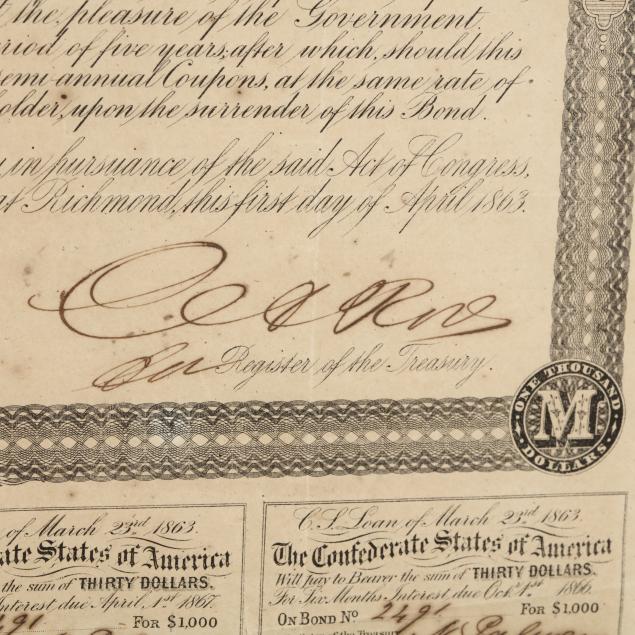 the pleasure of the Government,
riod of five years; after which, should this
emi-annual Coupons, at the same rate of
older, upon the surrender of this Bond.
in pursuance of the said Act of Congress,
at Richmond, this first day of April 1863.
Register of the Treasury.
ONE THOUSAND
M
DOLLARS
of March 23rd 1863.
ate States of America
the sum of THIRTY DOLLARS.
Interest due April 1st 1867.
491 FOR $1,000
C.S. Loan of March 23rd 1863.
The Confederate States of America
Will pay to Bearer the sum of THIRTY DOLLARS.
For Six Months Interest due Octr 1st 1866.
ON BOND No 2491 FOR $1,000
of the Treasury